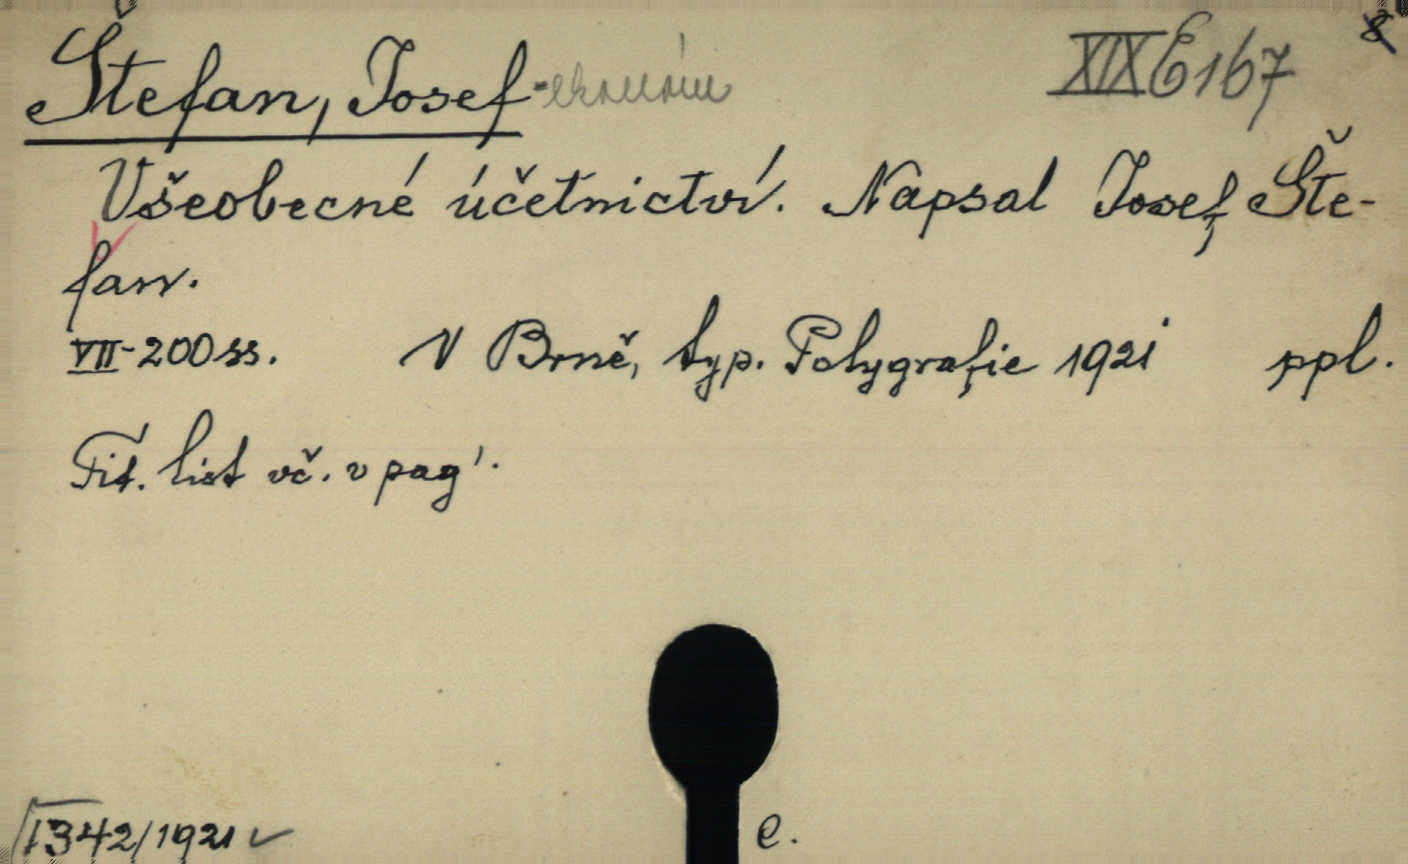 Štefan, Josef - ekonom XIX E 167
Všeobecné účetnictví. Napsal Josef Šte-
fan.
VII-200 ss. V Brně, typ. Polygrafie 1921 ppl.
Tit. list vč. v pag'.
1342/1921 ✓ e.